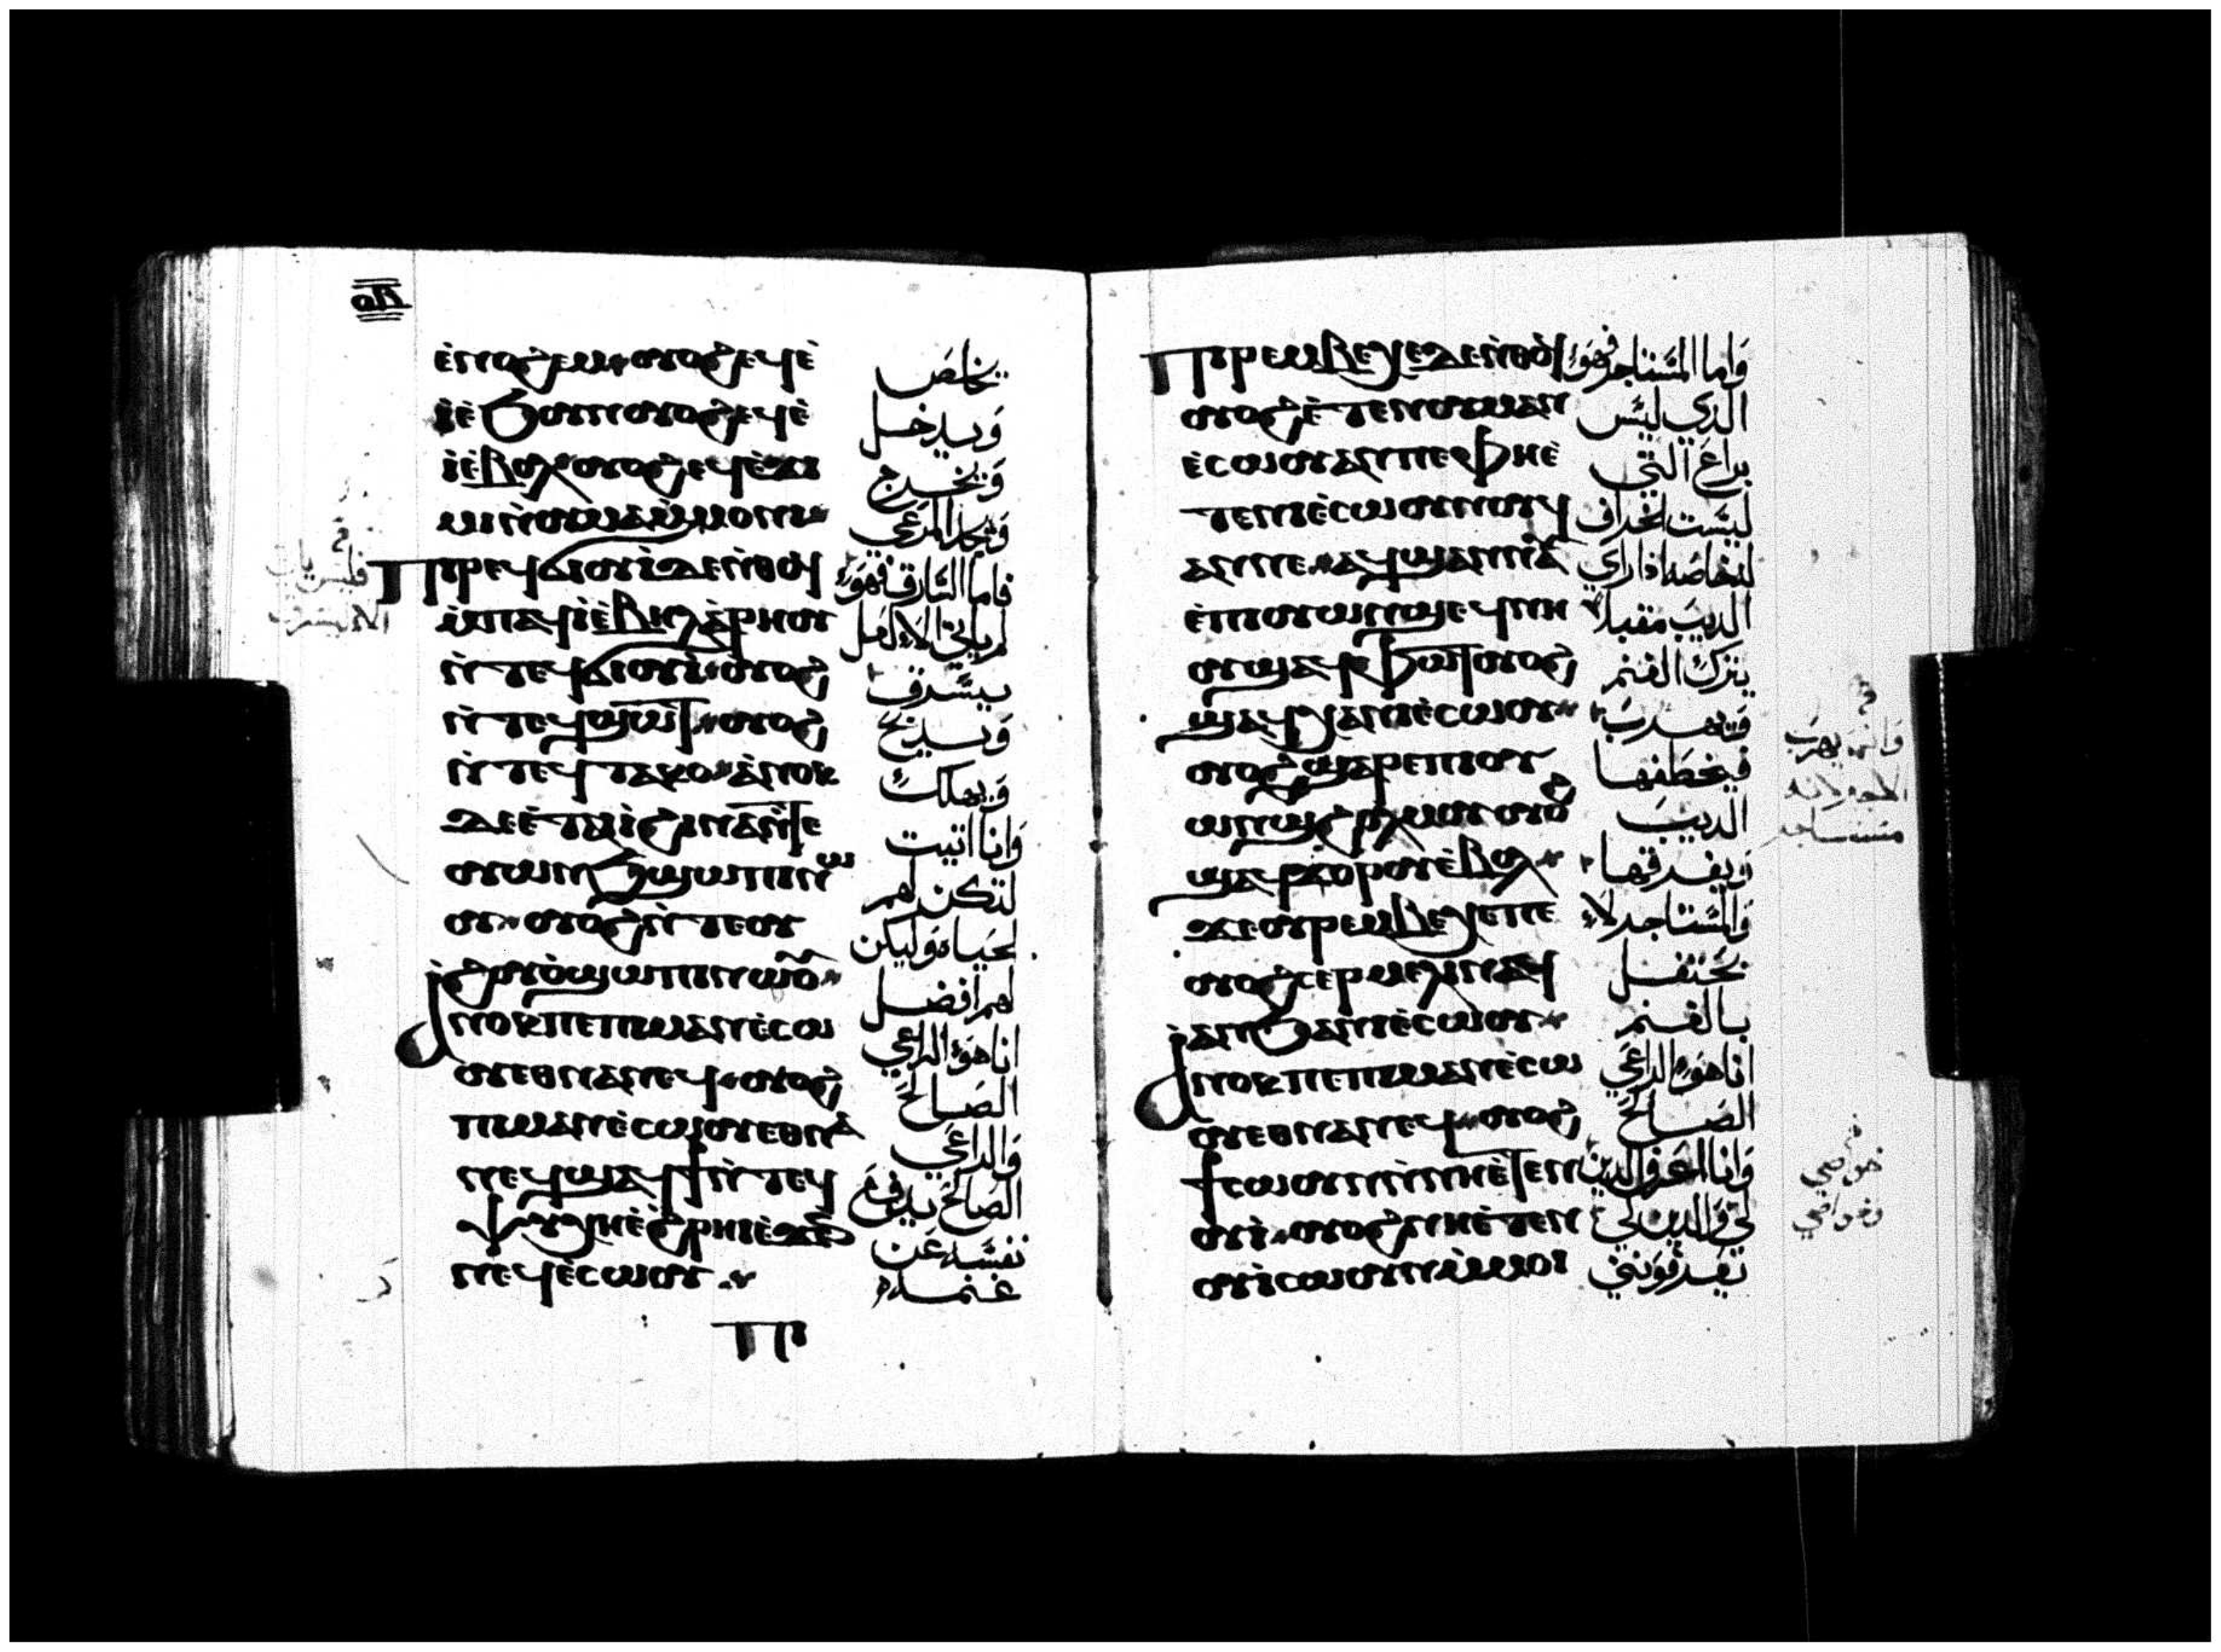 ⲟⲃ
ⲉ̀ⲛⲟϩⲉⲙ ⲟⲩⲟϩ ⲉϥⲉ̀
ⲓ̀ⲉ̀ϧⲟⲩⲛ ⲟⲩⲟϩ ⲉϥⲉ̀
ⲓ̀ⲉ̀ⲃⲟⲗ ⲟⲩⲟϩ ⲉϥⲉ̀ϫⲓ
ⲙⲓ ⲛ̀ⲟⲩⲙⲁⲙ̀ⲙⲟⲛⲓ
Ⲡⲓⲣⲉϥϭⲓⲟⲩⲓ̀ ⲇⲉ ⲛ̀ⲑⲟϥ
ⲙ̀ⲡⲁϥⲓ̀ ⲉ̀ⲃⲏⲗ ⲁ̀ⲣⲏⲟⲩ
ⲛ̀ⲧⲉϥϭⲓⲟⲩⲓ̀ ⲟⲩⲟϩ
ⲛ̀ⲧⲉϥϣⲱⲧ ⲟⲩⲟϩ
ⲛ̀ⲧⲉϥⲧⲁⲕⲟ ⲁ̀ⲛⲟⲕ
ⲇⲉ ⲉ̀ⲧⲁⲓ̀ ϩⲓⲛⲁ ⲛ̀ⲧⲉ
ⲟⲩⲱⲛϧ ϣⲱⲡⲓ ⲛⲱ
ⲟⲩ ⲟⲩⲟϩ ⲛ̀ⲧⲉⲟⲩ
ϩⲟⲩⲟ̀ ϣⲱⲡⲓ ⲛⲱⲟⲩ
Ⲁⲛⲟⲕ ⲡⲉ ⲡⲓⲙⲁⲛⲉ̀ⲥⲱ
ⲟⲩ ⲉⲑⲛⲁⲛⲉϥ ⲟⲩⲟϩ
ⲡⲓⲙⲁⲛⲉ̀ⲥⲱⲟⲩ ⲉⲑⲛⲁ
ⲛⲉϥ ϣⲁϥϯ ⲛ̀ⲧⲉϥ
ⲯⲩⲭⲏ ⲉ̀ϩⲣⲏⲓ ⲉ̀ϫⲉⲛ
ⲛⲉϥⲉ̀ⲥⲱⲟⲩ
ⲡⲓ
يخلص
وَيدخل
وَيخرج
وَيجد المرعي
فاما السَارق فهوَ
لم ياتي الا لعل
يسَرق
وَيدبح
وَيهلك
وَانا اتيت
لتكن لهم
الحياه وَليكن
لهم افضل
انا هوَ الراعي
الصَالح
وَالراعي
الصَالح يدفع
نفسَه عَن
غنمه
Ⲡⲓⲣⲉⲙⲃⲉⲭⲉ ⲇⲉ ⲛ̀ⲑⲟϥ
ⲟⲩⲟϩ ⲉ̀ⲧⲉⲛⲟⲩⲙⲁⲛ
ⲉ̀ⲥⲱⲟⲩ ⲁⲛ ⲡⲉ ⲫⲏⲉ̀
ⲧⲉ ⲛⲓⲉ̀ⲥⲱⲟⲩ ⲛⲟⲩϥ
ⲁⲛ ⲛⲉ ⲁϥϣⲁⲛⲛⲁⲩ
ⲉ̀ⲡⲓⲟⲩⲱⲛϣ ⲉϥⲛⲏ
ⲟⲩ ϣⲁϥⲫⲱⲧ ⲟⲩⲟϩ
ϣⲁϥⲭⲁ ⲛⲓⲉ̀ⲥⲱⲟⲩ
ⲟⲩⲟϩ ϣⲁⲣⲉ ⲡⲓⲟⲩ
ⲱⲛϣ ϩⲟⲗⲙⲟⲩ ⲟⲩⲟϩ
ϣⲁϥϫⲟⲣⲟⲩ ⲉ̀ⲃⲟⲗ
ϫⲉ ⲟⲩⲣⲉⲙⲃⲉⲭⲉ ⲡⲉ
ⲟⲩⲟϩ ⲥⲉⲣⲙⲉⲗⲓⲛ ⲛⲁϥ
ⲁⲛ ϧⲁ ⲛⲓⲉ̀ⲥⲱⲟⲩ
Ⲁⲛⲟⲕ ⲡⲉ ⲡⲓⲙⲁⲛⲉ̀ⲥⲱ
ⲟⲩ ⲉⲑⲛⲁⲛⲉϥ ⲟⲩⲟϩ
ϯⲥⲱⲟⲩⲛ ⲛ̀ⲛⲏⲉ̀ⲧⲉⲛ
ⲟⲩⲓ̀ ⲟⲩⲟϩ ⲛⲏⲉ̀ⲧⲉⲛ
ⲟⲩⲓ̀ ⲥⲱⲟⲩⲛ ⲙ̀ⲙⲟⲓ
وَاما المسَتاجر فهوَ
الدي ليسَ
براعَ التي
ليسَت الخراف
لخاصته اذا راي
الديب مقبلا
يترك الغنم
وَيهرب
فيخطفها
الديب
وَيفرقها
وَالمسَتاجر لا
يحتفل
بالغنم
انا هوَ الراعَي
الصَالح
وَانا اعَرف الدين
لي وَالدين لي
يعَرفوَنني
وَانما يهرب